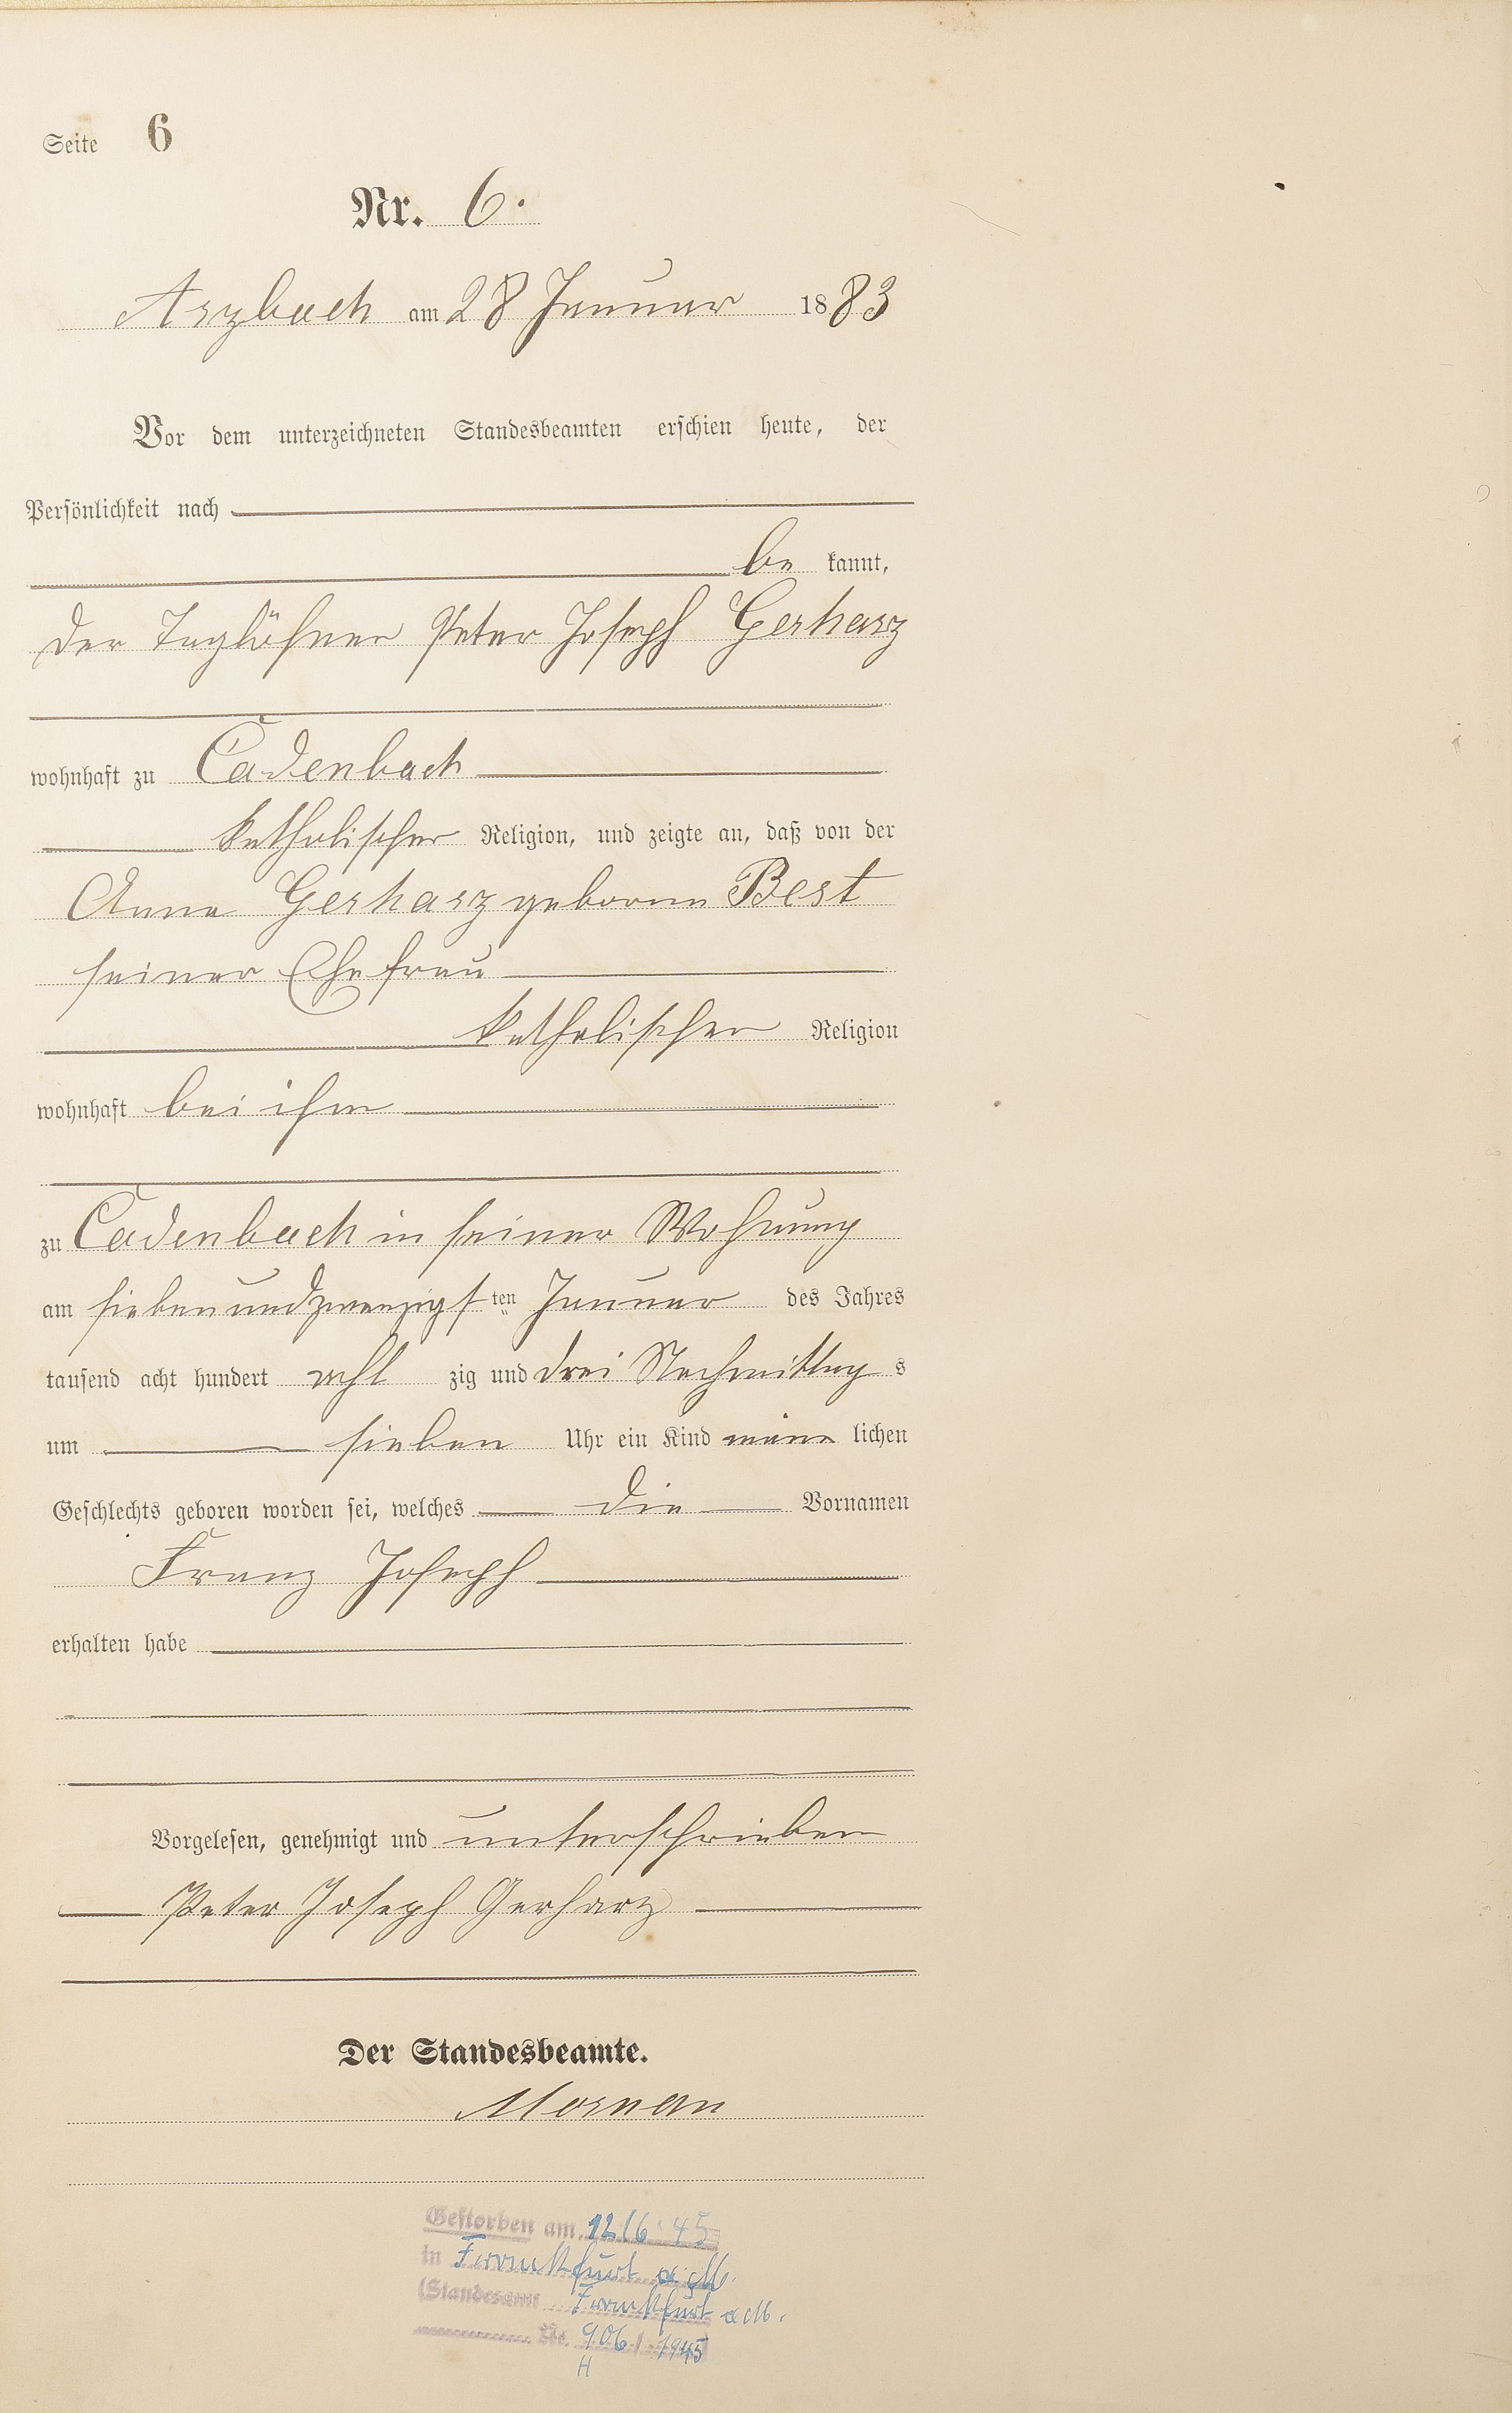 Seite 6
Nr. 6.
Arzbach am 28 Januar 1883
Vor dem unterzeichneten Standesbeamten erschien heute, der
Persönlichkeit nach
be kannt,
der Taglöhner Peter Joseph Gerharz
wohnhaft zu Cadenbach
katholischer Religion, und zeigte an, daß von der
Anna Gerharz geborne Best
seiner Ehefrau
katholischer Religion
wohnhaft bei ihm
zu Cadenbach in seiner Wohnung
am siebenundzwanzigsten Januar des Jahres
tausend acht hundert acht zig und drei Nachmittag s
um sieben Uhr ein Kind männ lichen
Geschlechts geboren worden sei, welches die Vornamen
Franz Joseph
erhalten habe
Vorgelesen, genehmigt und unterschrieben
Peter Joseph Gerharz
Der Standesbeamte.
Gestorben am 12/6.45
in Frankfurt a/M.
(Standesamt Frankfurt a M.
Nr. 906 / 1945)
H